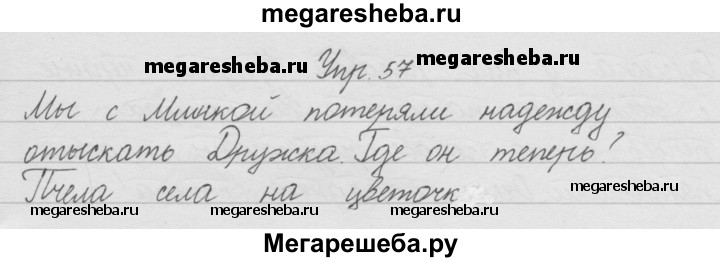 megaresheba.ru
megaresheba.ru Упр. 57 megaresheba.ru
Мы с Милкой потеряли надежду
отыскать Дружка. Где он теперь?
Пчела села на цветочк
megaresheba.ru
megaresheba.ru megaresheba.ru megaresheba.ru
Мегарешеба.ру